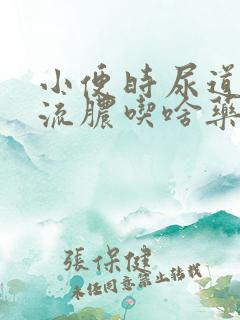 小便時尿道
流膿喫啥藥
張保健
未经同意禁止转载